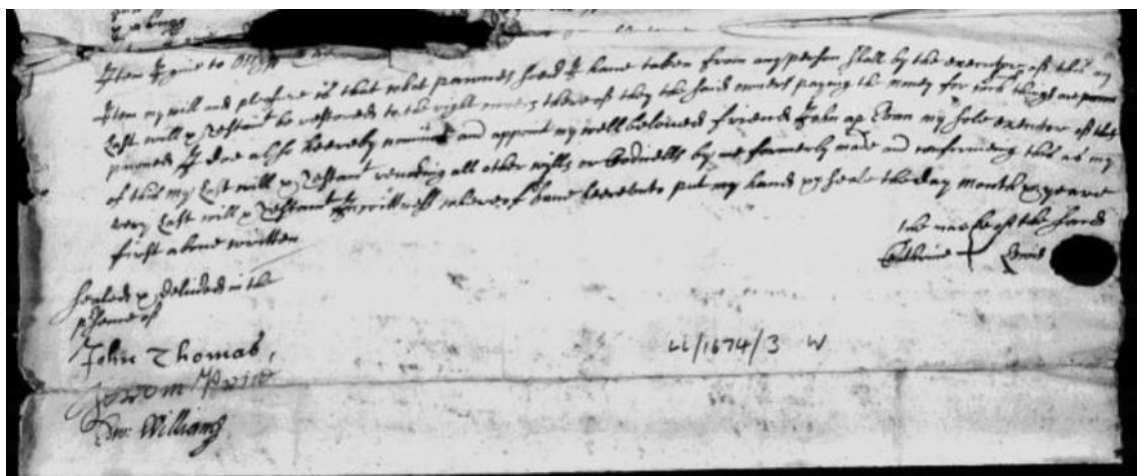 Item I give to
Item my will and pleasure is that what pawnes soed I have taken from any person shall by the executor of this my
Last will & Testamt be restored to the right owners thereof they the said owners paying the money for such things are
pawned I doe alsoe hereby nominate and appoint my well beloved friend John ap Evan my sole executor of this
of this my Last will & Testamt revoking all other wills or Codicells by me formerly made and confirming this as my
very Last will & Testamt In wittness whereof have hereunto put my hand & seale the day month & yeare
first above written
the marke of the said
Catherine + Lewis
Sealed & delivered in the
psence of
John Thomas,
Edw: Williams
LL/1674/3 W